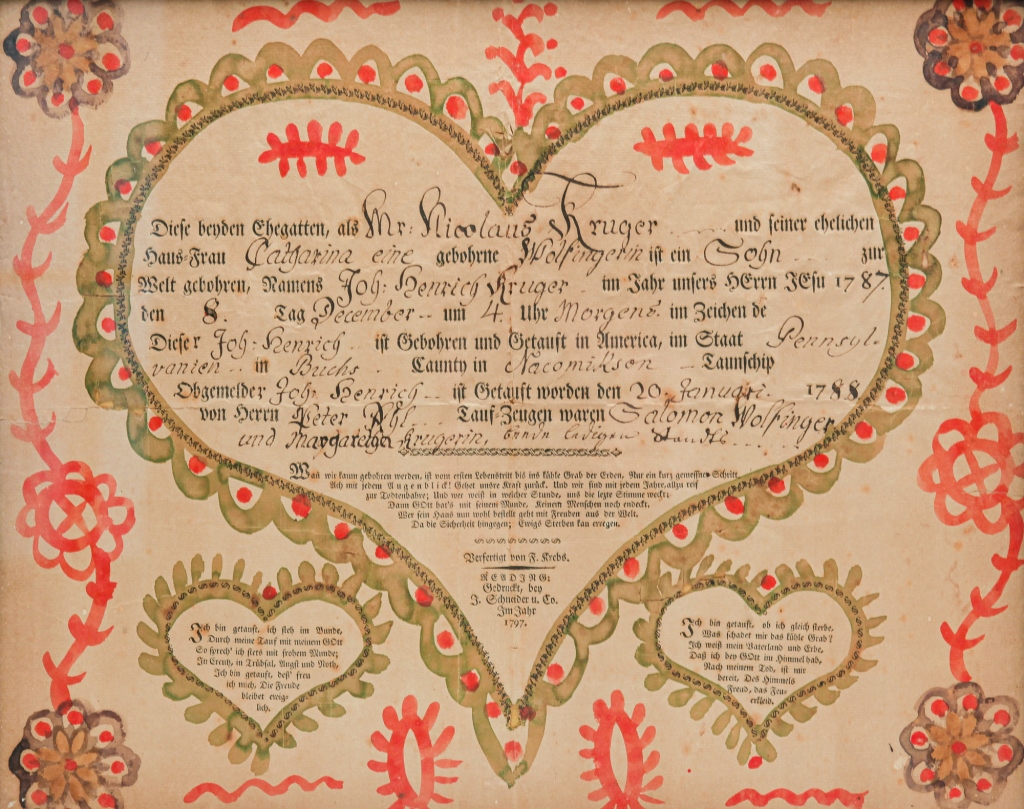 Diese beyden Ehegatten, als Mr: Nicolaus Kruger und seiner ehelichen
Haus-Frau Catharina eine gebohrne Wolfingerin ist ein Sohn zur
Welt gebohren, Namens Joh: Henrich Kruger im Jahr unsers HErrn JEsu 1787.
den 8. Tag December um 4. Uhr Morgens im Zeichen de
Dieser Joh: Henrich ist Gebohren und Getauft in America, im Staat Pennsyl-
vanien in Buchs Caunty in Nacomikson Taunschip
Obgemelder Joh: Henrich ist Getauft worden den 20. Januari 1788
von Herrn Peter Tauf-Zeugen waren Salomon Wolfinger
und Margaretha Krugerin, beyde ledigen Standes
Wan wir kaum gebohren werden, ist vom ersten Lebenstritt bis ins kühle Grab der Erden, Nur ein kurz gemessner Schritt.
Ach mit jedem Augenblick! Gehet unsre Kraft zurück. Und wir sind mit jedem Jahre, allzu reif
zur Todtenbahre; Und wer weiß in welcher Stunde, uns die lezte Stimme weckt;
Dann GOtt hat's mit seinem Munde, Keinem Menschen noch endeckt.
Wer sein Haus nun wohl bestellt geht mit Freuden aus der Welt,
Da die Sicherheit hingegen; Ewigs Sterben kan erregen.
Verfertigt von F. Krebs.
READING:
Gedruckt, bey
J. Schneider u. Co.
Im Jahr
1797.
Ich bin getauft, ich steh im Bunde,
Durch meine Tauf mit meinem GOtt
So sprech' ich stets mit frohem Munde;
In Creutz, in Trübsal, Angst und Noth,
Ich bin getauft, deß' freu
ich mich, Die Freude
bleibet ewig-
lich.
Ich bin getauft, ob ich gleich sterbe,
Was schadet mir das kühle Grab?
Ich weiß mein Vaterland und Erbe,
Daß ich bey GOtt im Himmel hab,
Nach meinem Tod, ist mir
bereit, Des Himmels
Freud, das Fey-
erkleid.